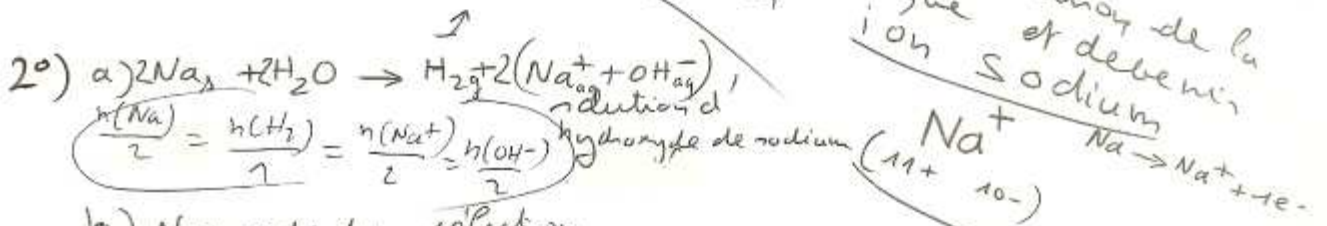 2°) a) 2Na s + 2H₂O → H₂g + 2(Na⁺aq + OH⁻aq),
solution d'
hydroxyde de sodium
n(Na)/2 = n(H₂)/1 = n(Na⁺)/2 = n(OH⁻)/2
de la
et devenir
ion sodium
Na⁺
(11+ 10-)
Na → Na⁺ + 1e-